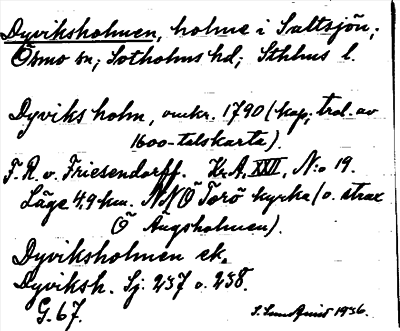 Dyviksholmen, holme i Saltsjön;
Ösmo sn; Sotholms hd; Sthlms l.
Dyviksholm, omkr. 1790 (kop. trol. av
1600-talskarta).
F. R. v. Friesendorff. Kr. A, XXII, N:o 19.
Läge 4,9 km. NNÖ Torö kyrka (o. strax
Ö Ängsholmen).
Dyviksholmen ek.
Dyviksh. Sj. 237 o. 238.
G. 67.
S. Lundquist 1936.